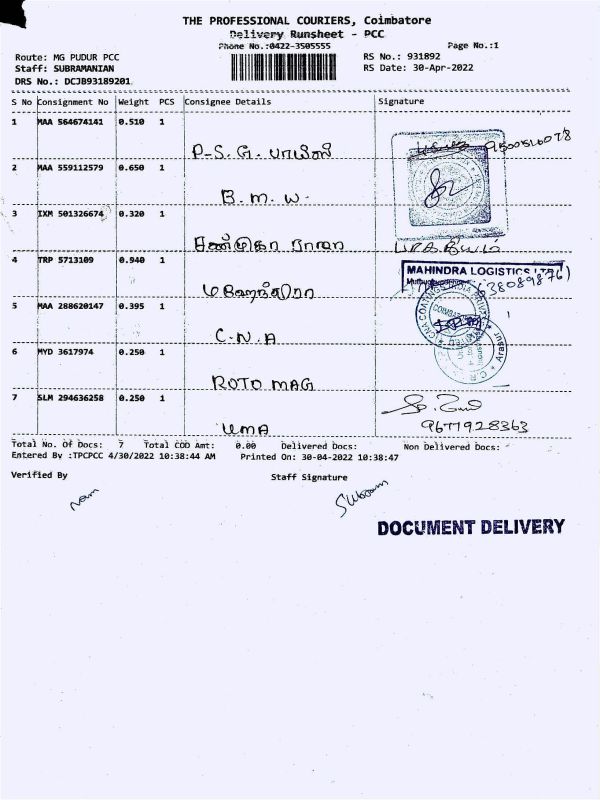 THE PROFESSIONAL COURIERS, Coimbatore
Delivery Runsheet - PCC
Phone No.:0422-3505555
Page No.:1
Route: MG PUDUR PCC
RS No.: 931892
Staff: SUBRAMANIAN
RS Date: 30-Apr-2022
DRS No.: DCJB93189201
S No Consignment No Weight PCS Consignee Details Signature
1 MAA 564674141 0.510 1
P-S. G.
2 MAA 559112579 0.650 1
B. M. W.
3 IXM 501326674 0.320 1
4 TRP 5713109 0.940 1
MAHINDRA LOGISTICS LTD
5 MAA 288620147 0.395 1
C.N.A
6 MYD 3617974 0.250 1
ROTO MAG
7 SLM 294636258 0.250 1
UMA
9677928363
Total No. Of Docs: 7 Total COD Amt: 0.00 Delivered Docs: Non Delivered Docs:
Entered By :TPCPCC 4/30/2022 10:38:44 AM Printed On: 30-04-2022 10:38:47
Verified By
Staff Signature
DOCUMENT DELIVERY